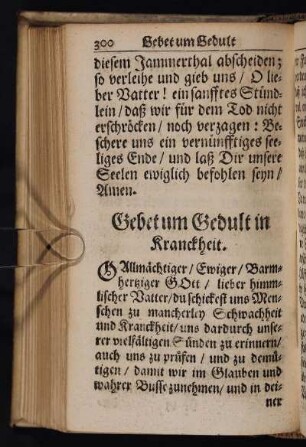 300 Gebet um Gedult
diesem Jammerthal abscheiden;
so verleihe und gieb uns / O lie-
ber Vatter! ein sanfftes Stünd-
lein / daß wir für dem Tod nicht
erschröcken / noch verzagen: Be-
schere uns ein vernünfftiges see-
liges Ende / und laß Dir unsere
Seelen ewiglich befohlen seyn /
Amen.
Gebet um Gedult in
Kranckheit.
O Allmächtiger / Ewiger / Barm-
hertziger GOtt / lieber himm-
lischer Vatter / du schickest uns Men-
schen zu mancherley Schwachheit
und Kranckheit / uns dardurch unse-
rer vielfältigen Sünden zu erinnern /
auch uns zu prüfen / und zu demü-
tigen / damit wir im Glauben und
wahrer Busse zunehmen / und in dei-
ner